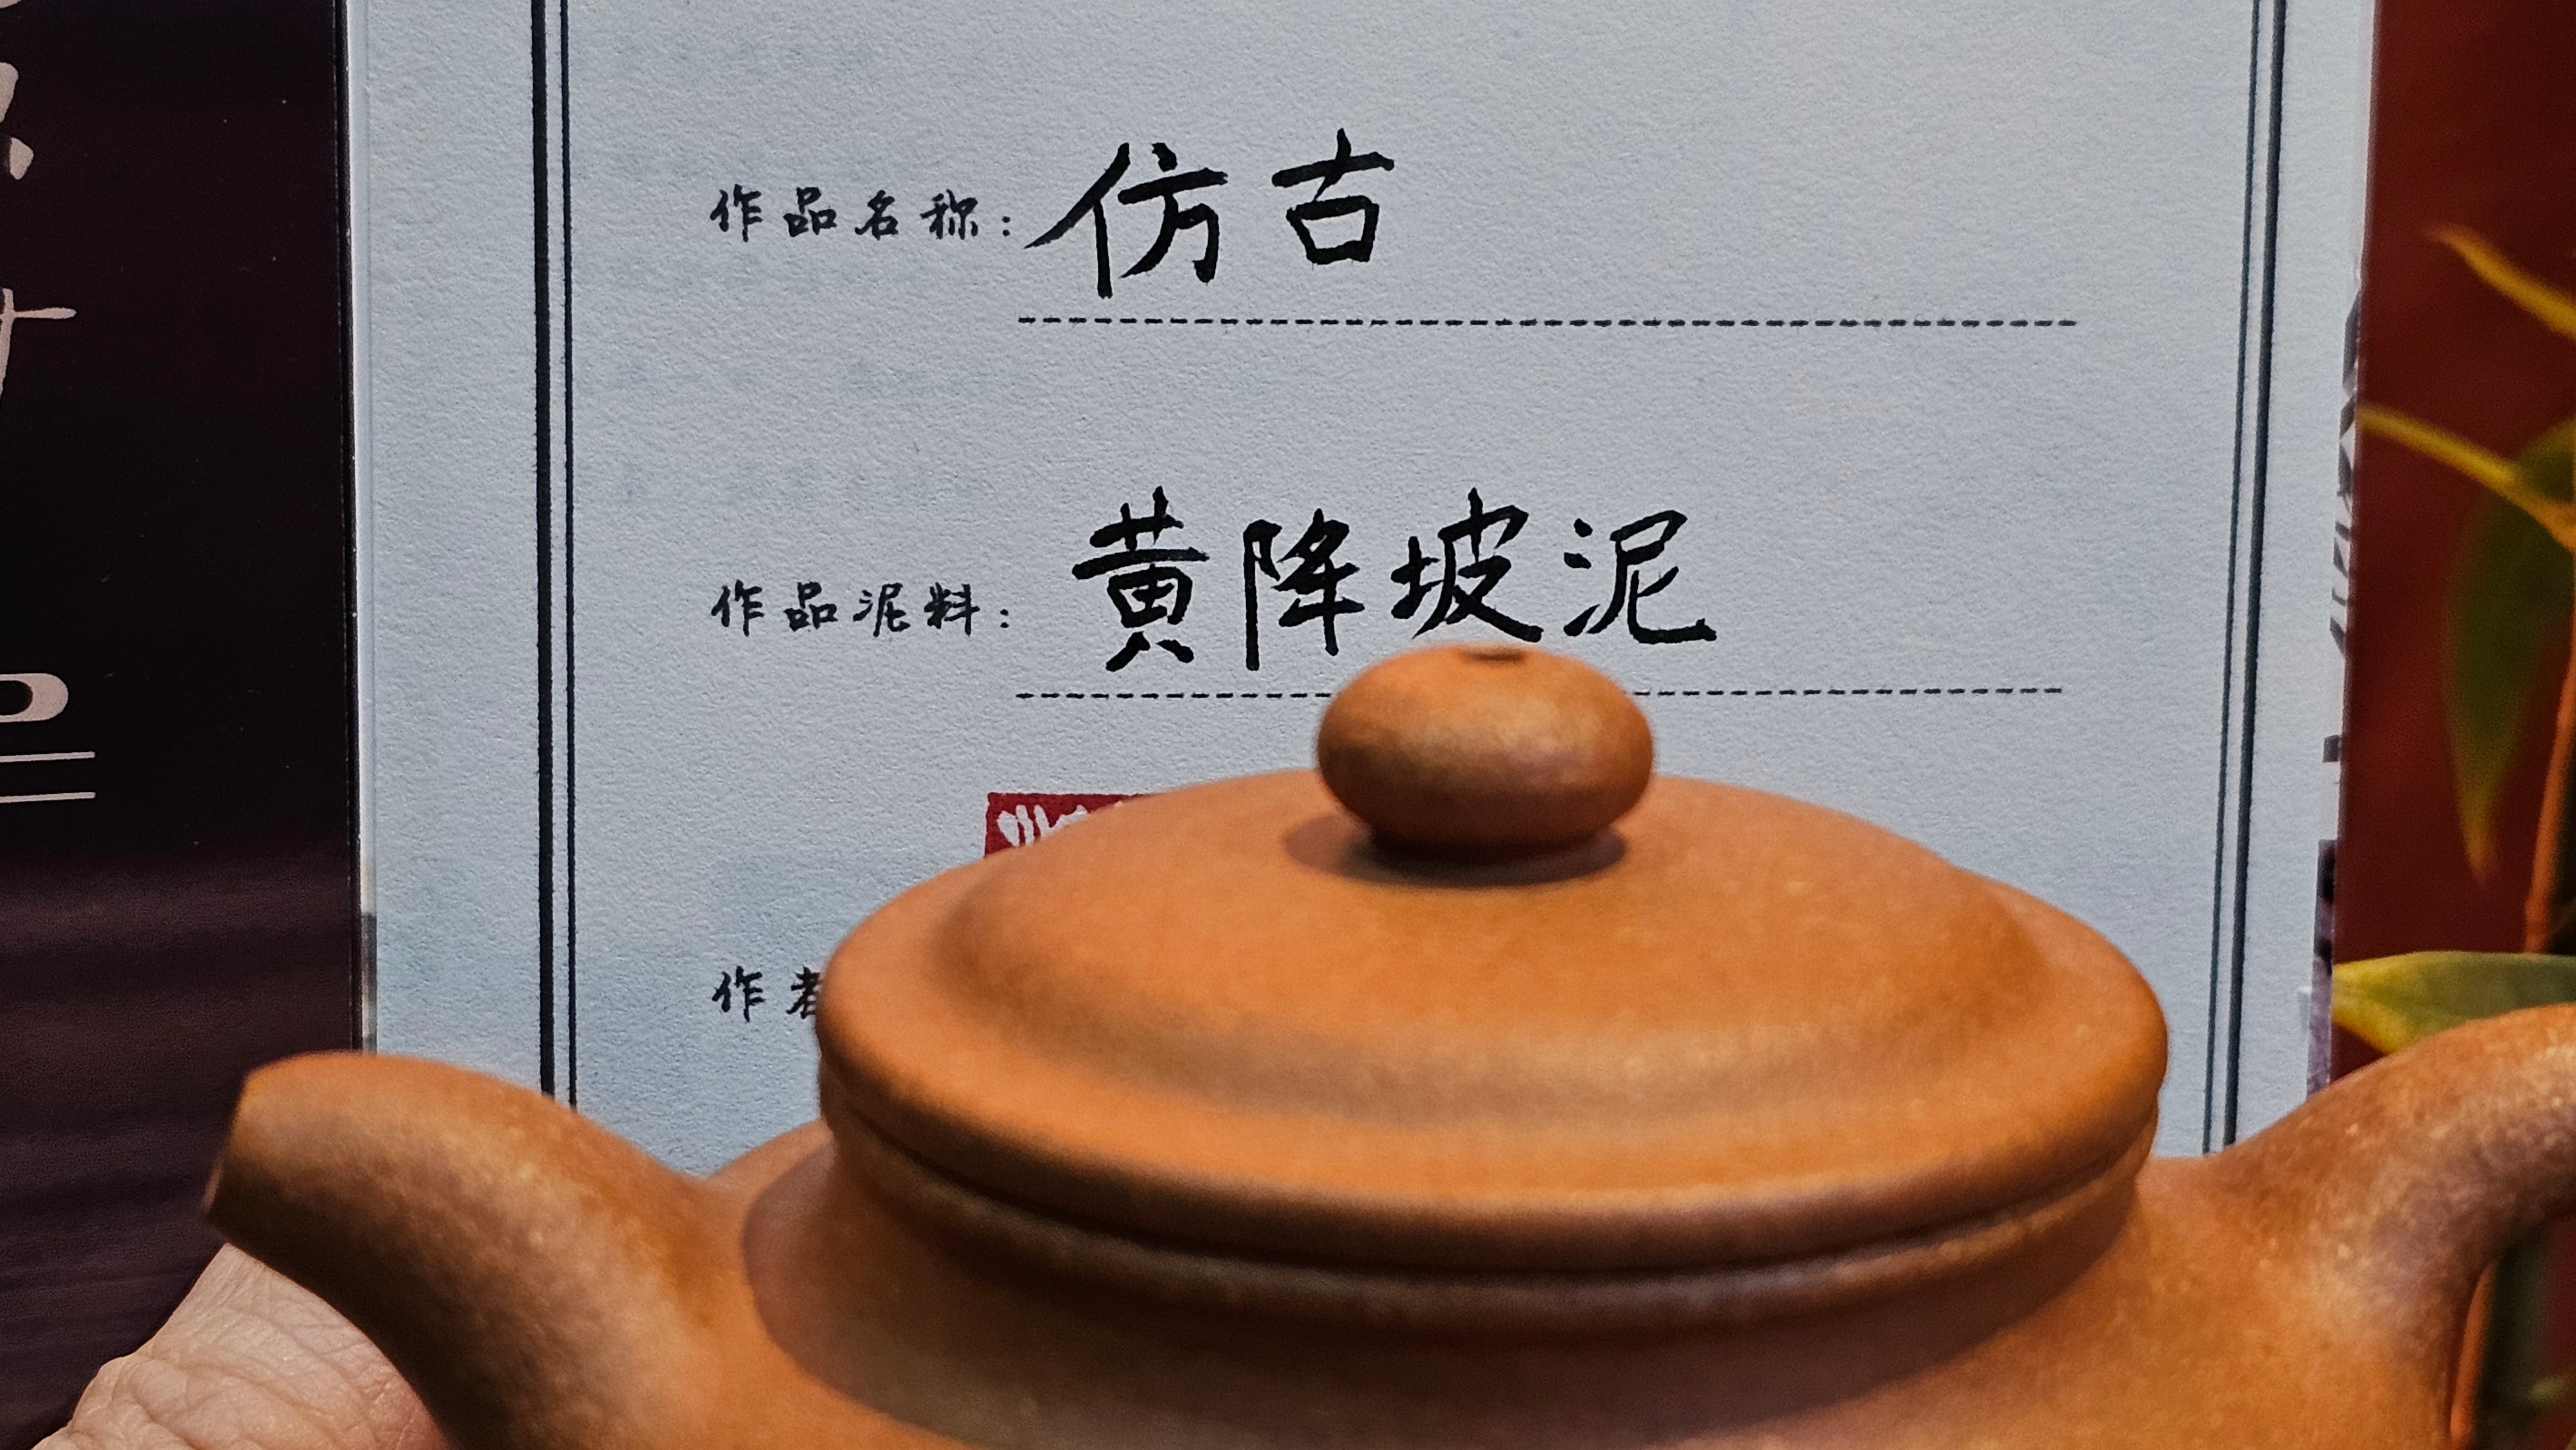 作品名称：仿古
作品泥料：黄降坡泥
作者